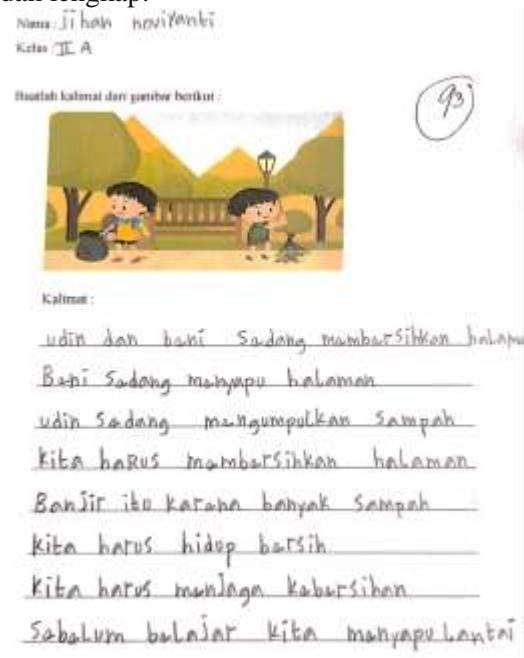 dan lengkap.
Nama : Jihan noviYanti
Kelas : II A
Buatlah kalimat dari gambar berikut :
93
Kalimat :
udin dan bani Sadang mambarSihkan halama
Bani Sadang manyapu halaman
udin Sadang mangumpulkan Sampah
kita haRUS mambarSihkan halaman
BanJir itu Karana banyak Sampah
Kita harus hidup barsih
Kita harus manJaga Kabarsihan
Sabalum balaJar kita manyapu Lantai